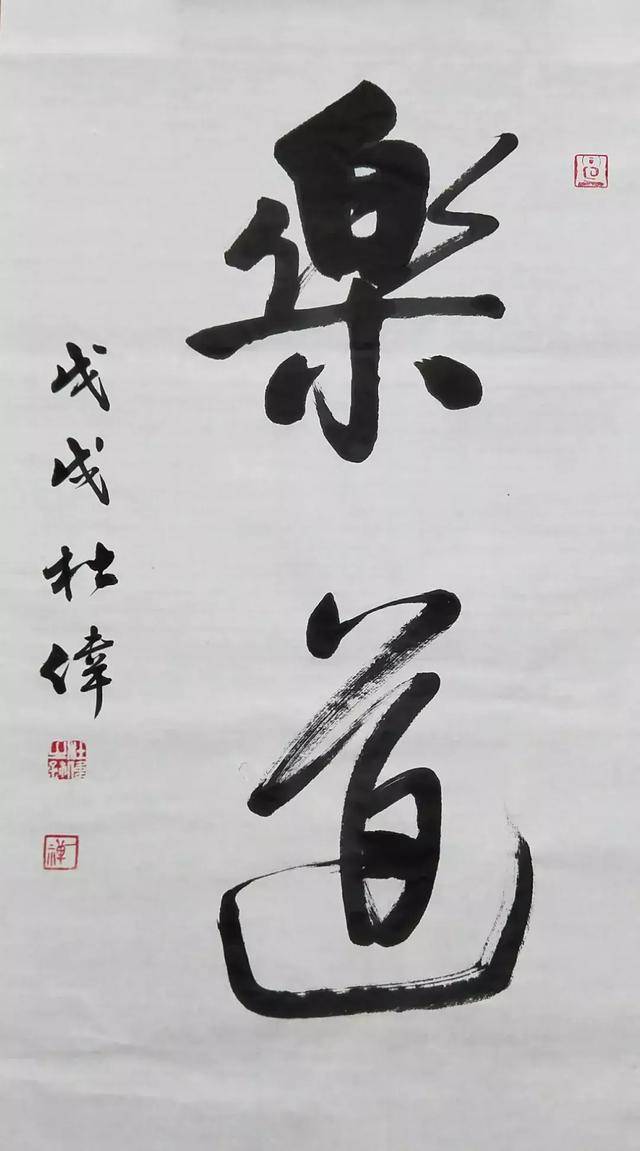 樂道
戊戌杜偉